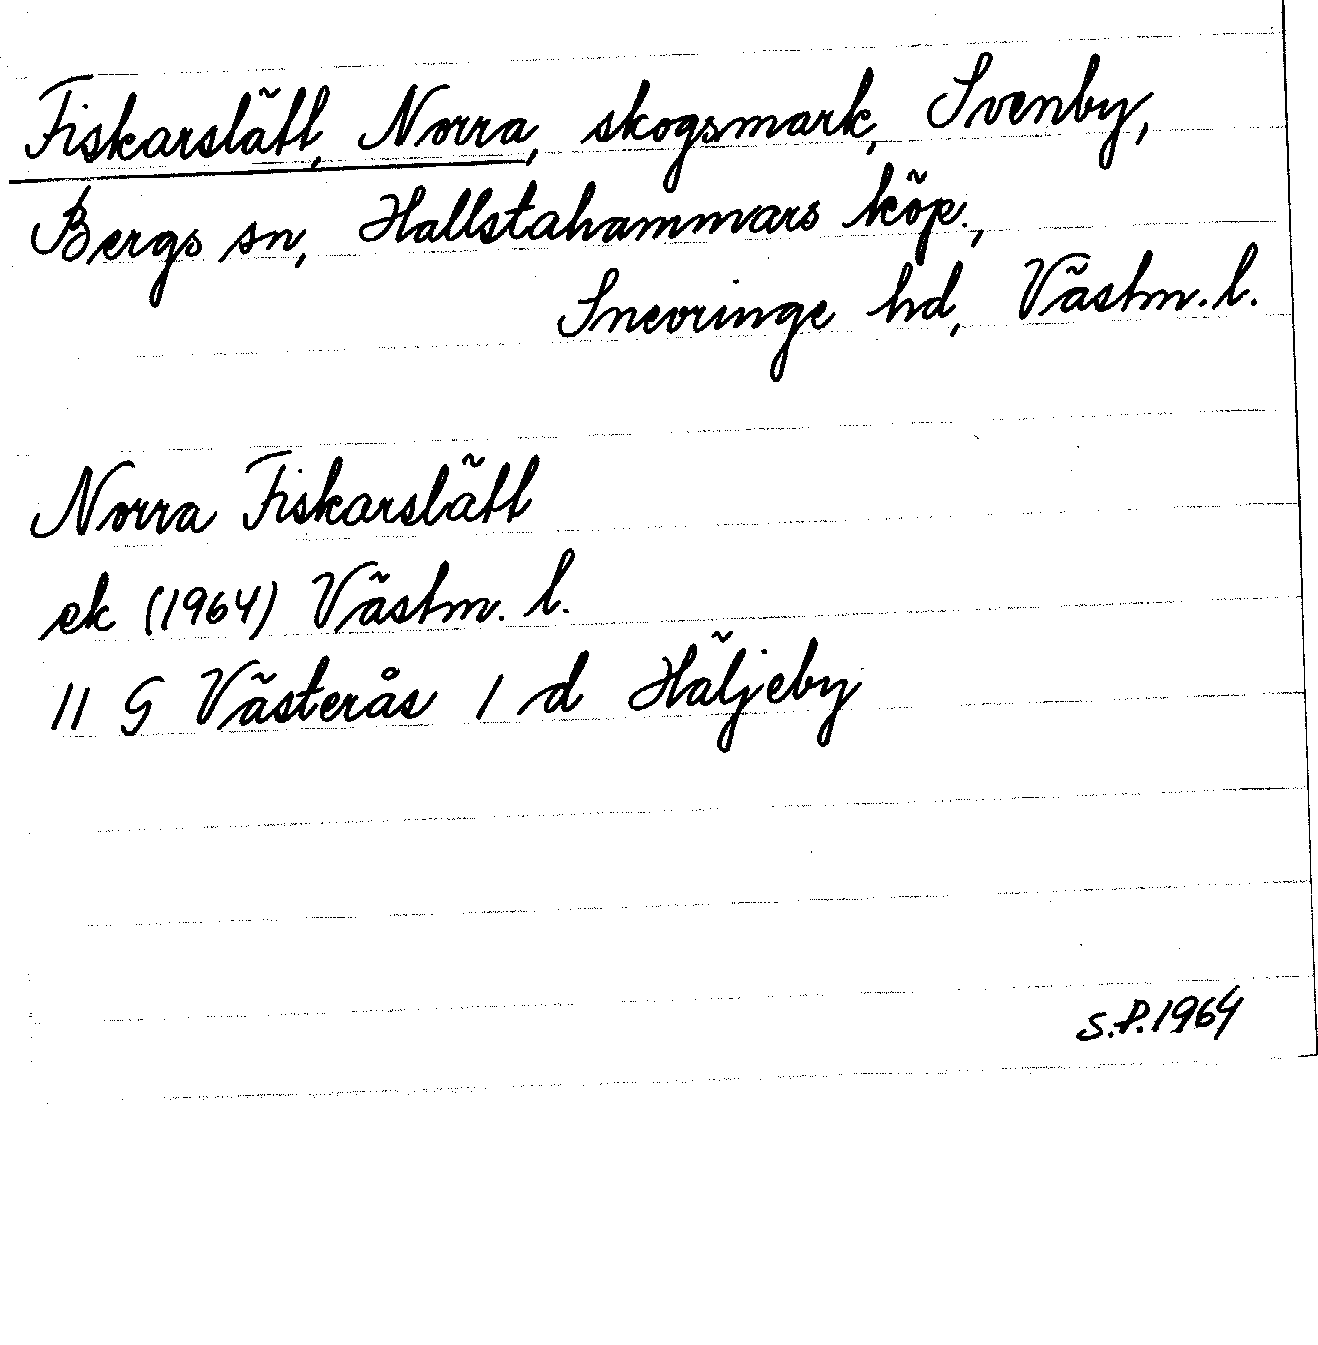 Fiskarslätt, Norra, skogsmark, Svenby,
Bergs sn, Hallstahammars köp.,
Snevringe hd, Västm. l.
Norra Fiskarslätt
ek (1964) Västm. l.
11 G Västerås 1 d Häljeby
S.P. 1964